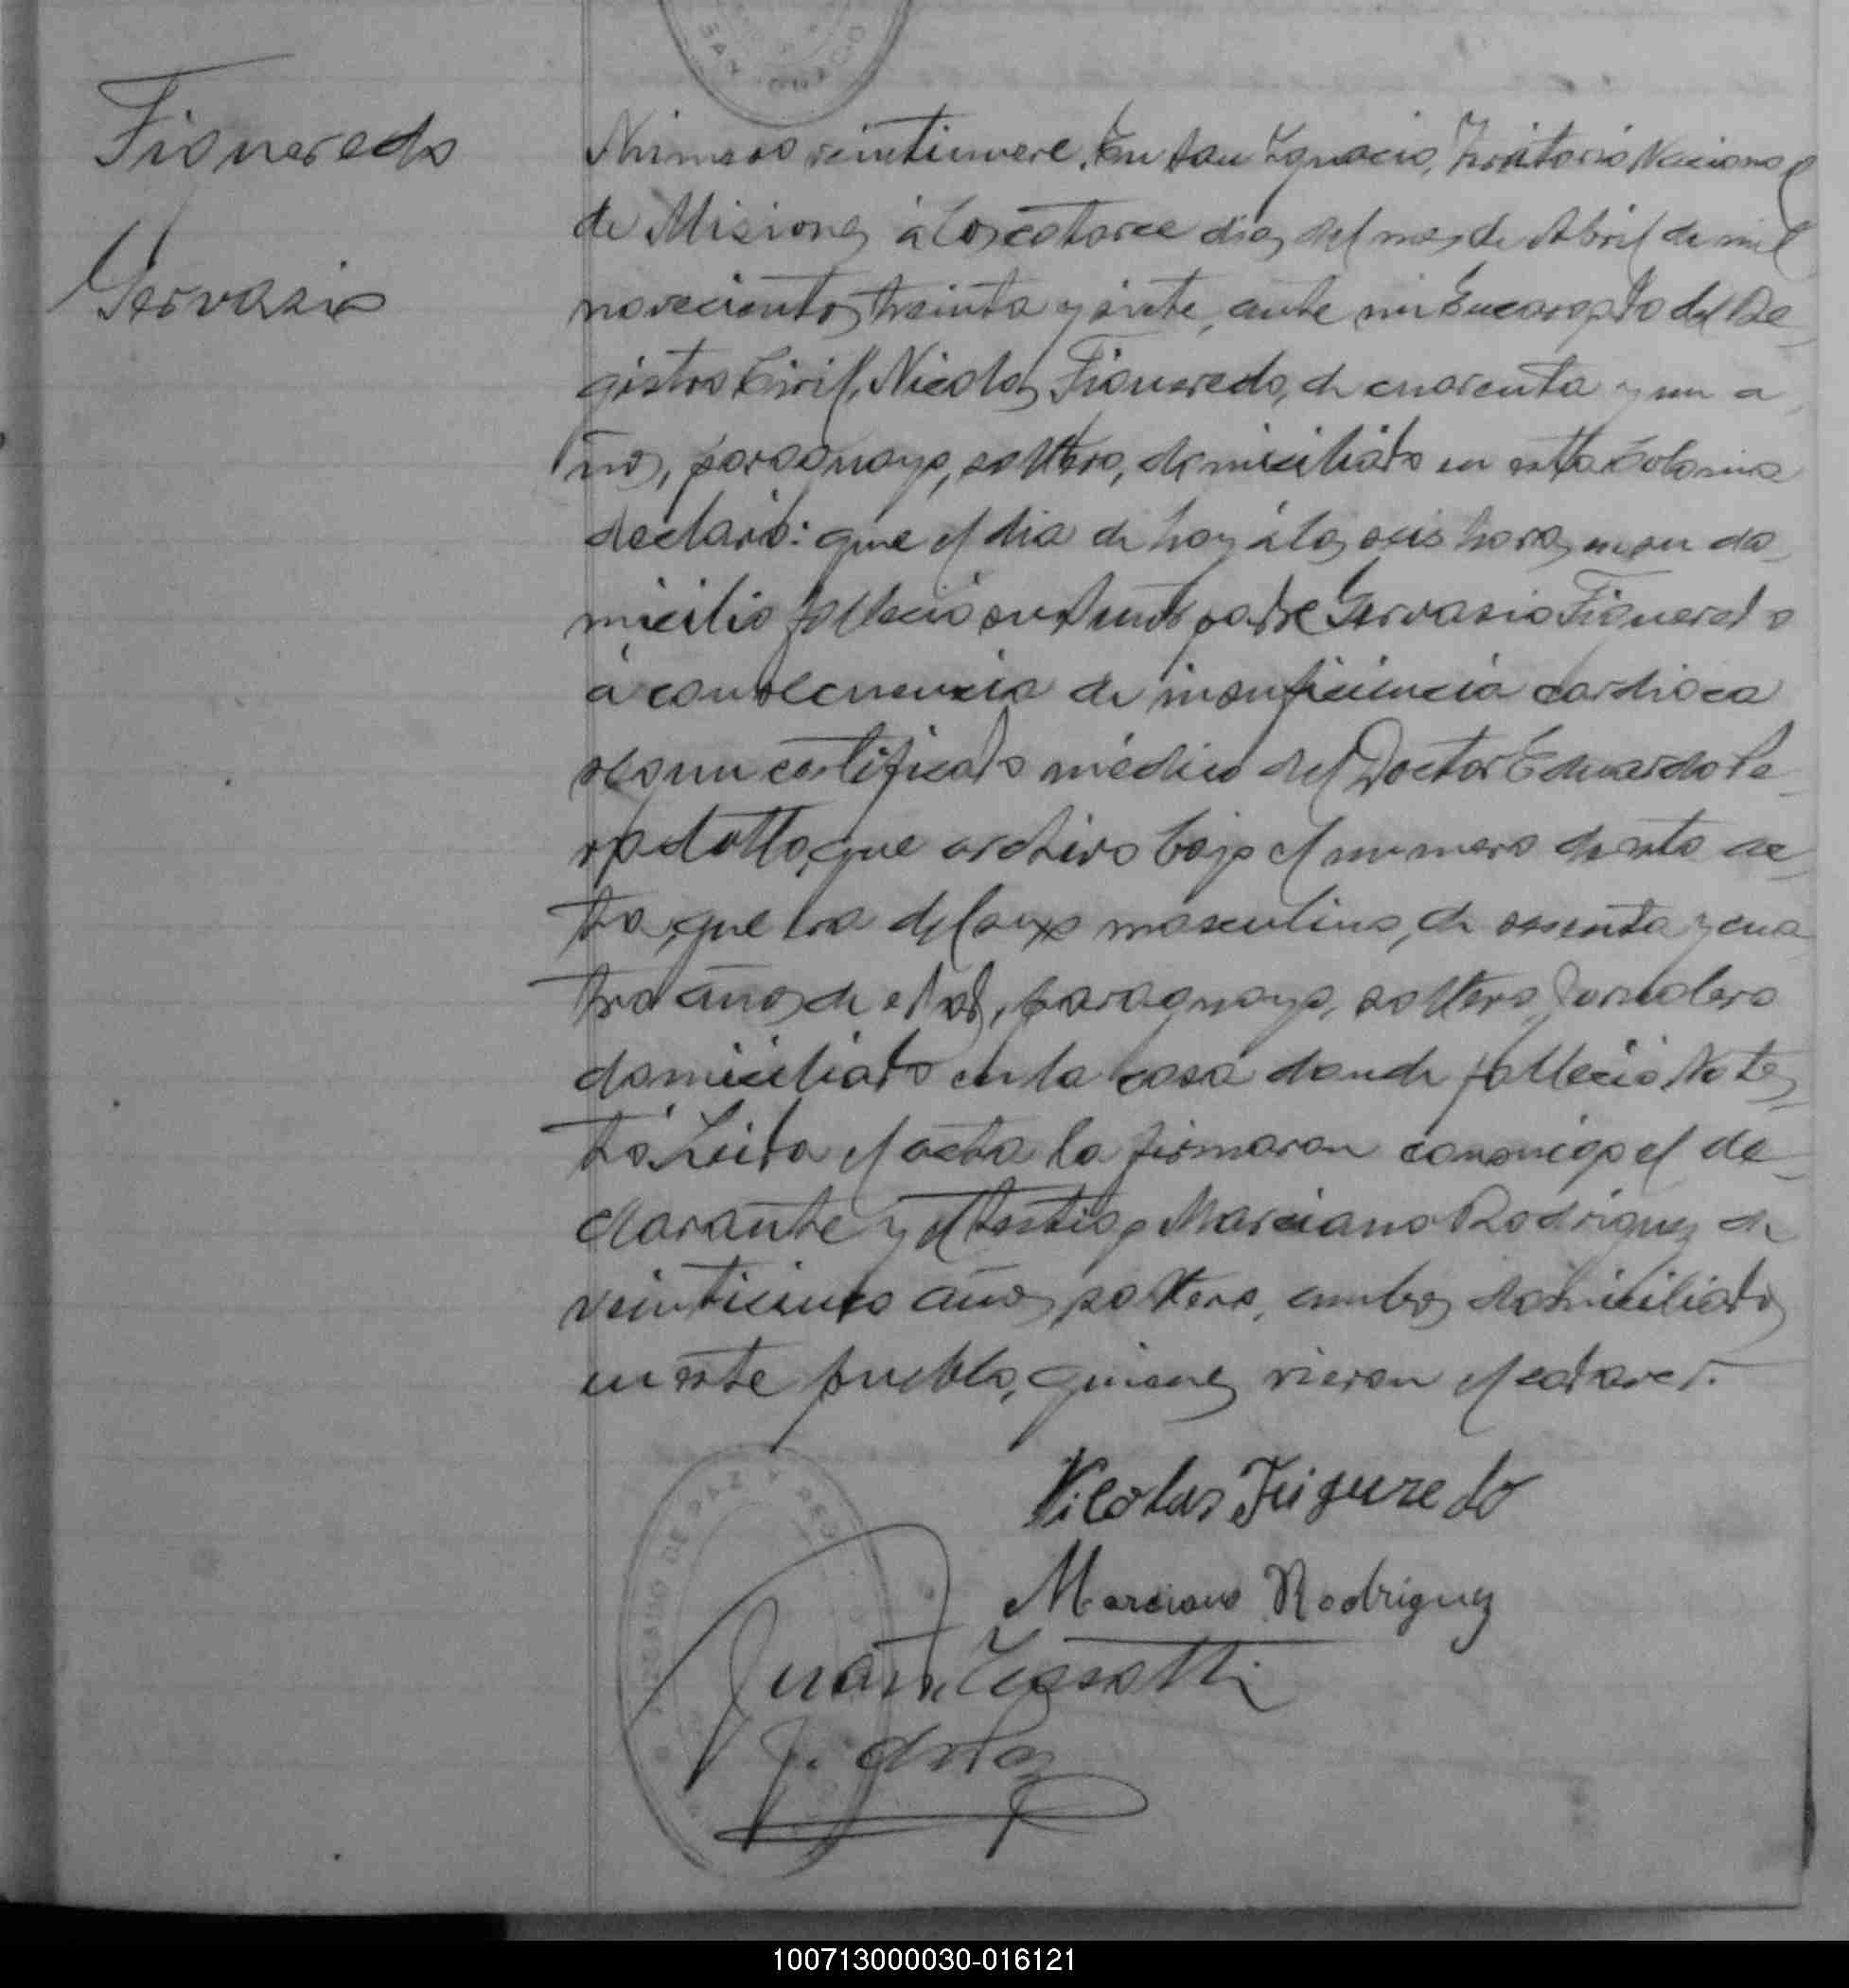 Figueredo
Gervasio
SAN IGNACIO
Número veintinueve. En San Ignacio, Territorio Nacional
de Misiones á los catorce dias del mes de Abril de mil
novecientos treinta y siete, ante mi Encargado del Re-
gistro Civil, Nicolas Figueredo, de cuarenta y un a-
ños, paraguayo, soltero, domiciliado en esta Colonia
declaró: que el dia de hoy á las seis horas en su do-
micilio falleció su padre Gervasio Figueredo
á consecuencia de insuficiencia cardiaca
segun certificado médico del Doctor Eduardo
que archivo bajo el numero de esta ac-
ta, que era del sexo masculino, de sesenta y cua
tro años de edad, paraguayo, soltero, Jornalero
domiciliado en la casa donde falleció. No tes-
tó. Leida el acta la firmaron conmigo el de-
clarante y el testigo Marciano Rodriguez de
veinticinco años, soltero, ambos domiciliados
en este pueblo, quienes vieron el cadaver.
Nicolas Feigueredo
Marciano Rodriguez
Juan
JUZGADO DE PAZ Y REG
100713000030-016121